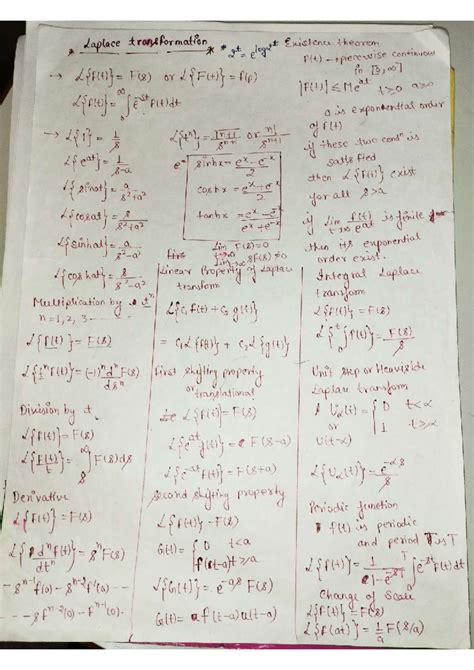 * Laplace transformation * * 2^t = e^{log 2^t}
→ L{F(t)} = F(s) or L{F(t)} = f(p)
L{f(t)} = ∫_0^∞ e^{-st} f(t) dt
→ L{1} = 1/s L{t^n} = ⌈n+1/s^{n+1} or n!/s^{n+1}
L{e^{at}} = 1/(s-a)
L{sin at} = a/(s²+a²)
L{cos at} = s/(s²+a²)
L{sinh at} = a/(s²-a²)
L{cosh at} = s/(s²-a²)
sinh x = (e^x - e^{-x})/2
cosh x = (e^x + e^{-x})/2
tanh x = (e^x - e^{-x})/(e^x + e^{-x})
Existence theorem
f(t) → piecewise continuous
|f(t)| ≤ Me^{at} t>0 a>0
a is exponential order
of f(t)
if these two condⁿ is
satisfied
then L{f(t)} exist
for all s>a
if Lim f(t)/e^{at} is finite
then its exponential
order exist.
Multiplication by t^n
n=1,2,3 ---
L{f(t)} = F(s)
L{t^n f(t)} = (-1)^n d^n/ds^n F(s)
Division by t
L{f(t)} = F(s)
L{f(t)/t} = ∫_s^∞ F(s) ds
Derivative
L{f(t)} = F(s)
L{d^n f(t)/dt^n} = s^n F(s)
- s^{n-1} f(0) - s^{n-2} f'(0)
-- s f^{n-2}(0) - f^{n-1}(0)
Lim F(s)=0
Linear Property of Laplace
transform
L{c₁ f(t) + c₂ g(t)}
= c₁L{f(t)} + c₂L{g(t)}
First shifting property
or
translational
L{f(t)} = F(s)
L{e^{at} f(t)} = F(s-a)
L{e^{-at} f(t)} = F(s+a)
second shifting property
L{f(t)} = F(s)
G(t) = { 0 t<a
f(t-a) t≥a
L{G(t)} = e^{-as} F(s)
G(t) = f(t-a) u(t-a)
Integral Laplace
transform
L{f(t)} = F(s)
L{∫_0^t f(t)} = F(s)/s
Unit step or Heaviside
Laplace transform
U_α(t) = { 0 t<α
or 1 t≥α
U(t-α)
L{U_α(t)} = e^{-αs}/s
Periodic function
f(t) is periodic
and period T is T
L{f(t)} = 1/(1-e^{-sT}) ∫_0^T e^{-st} f(t) dt
Change of Scale
L{f(t)} = F(s)
L{f(at)} = 1/a F(s/a)